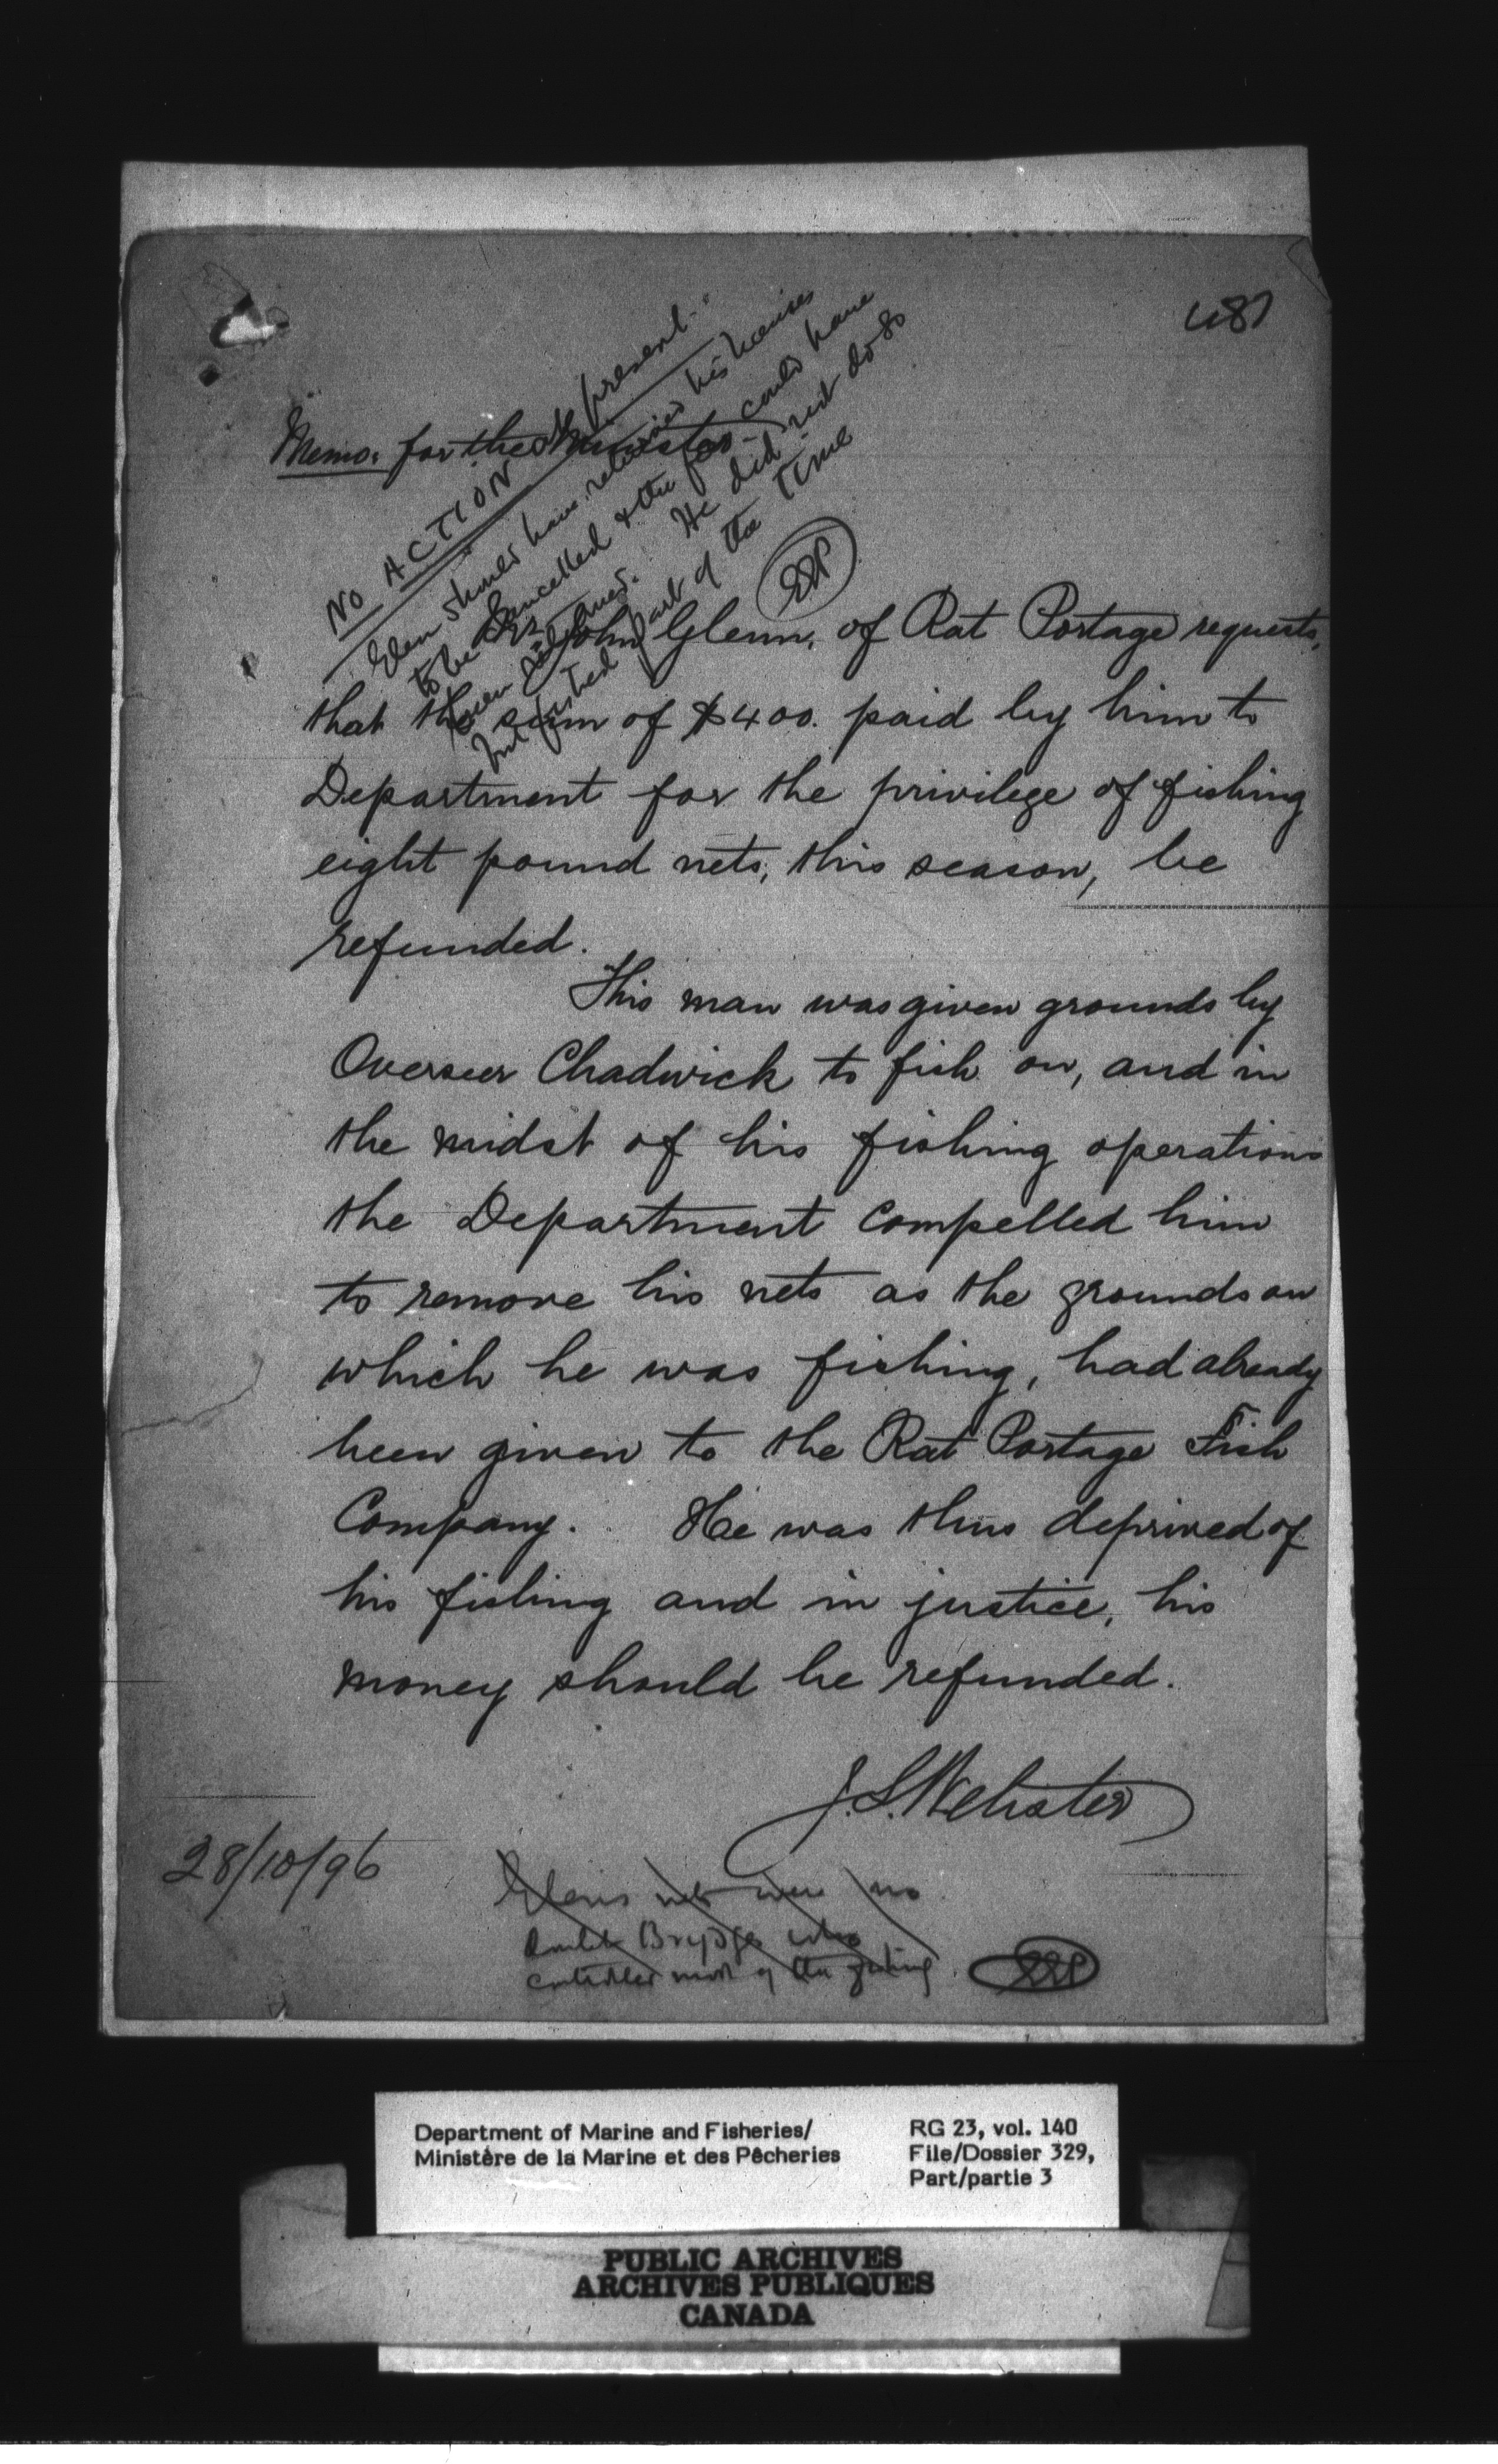 487
Memo. for the Minister
No ACTION at present.
Glen should have returned his licenses
to be cancelled & the fee could have
been
He did not do so
but fished part of the time
EEP
Mr. John Glenn, of Rat Portage requests,
that the sum of $400. paid by him to
Department for the privilege of fishing
eight pound nets, this season, be
refunded.
This man was given grounds by
Overseer Chadwick to fish on, and in
the midst of his fishing operations
the Department compelled him
to remove his nets as the grounds on
which he was fishing, had already
been given to the Rat Portage Fish
Company. He was thus deprived of
his fishing and in justice, his
money should be refunded.
J. S. Webster
28/10/96
Glen's nets were no
doubt Brydges who
controlled most of the fishing.
EEP
Department of Marine and Fisheries/
Ministère de la Marine et des Pêcheries
RG 23, vol. 140
File/Dossier 329,
Part/partie 3
PUBLIC ARCHIVES
ARCHIVES PUBLIQUES
CANADA